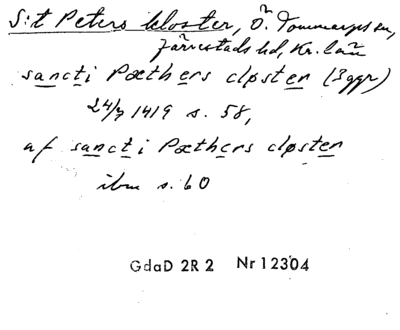 S:t Peters kloster, Ö. Tommarps sn,
Järrestads hd, Kr. län
sancti Pæthers closter (3ggr)
24/7 1419 s. 58,
af sancti Pæthers closter
ibm s. 60
GdaD 2R 2 Nr 12304